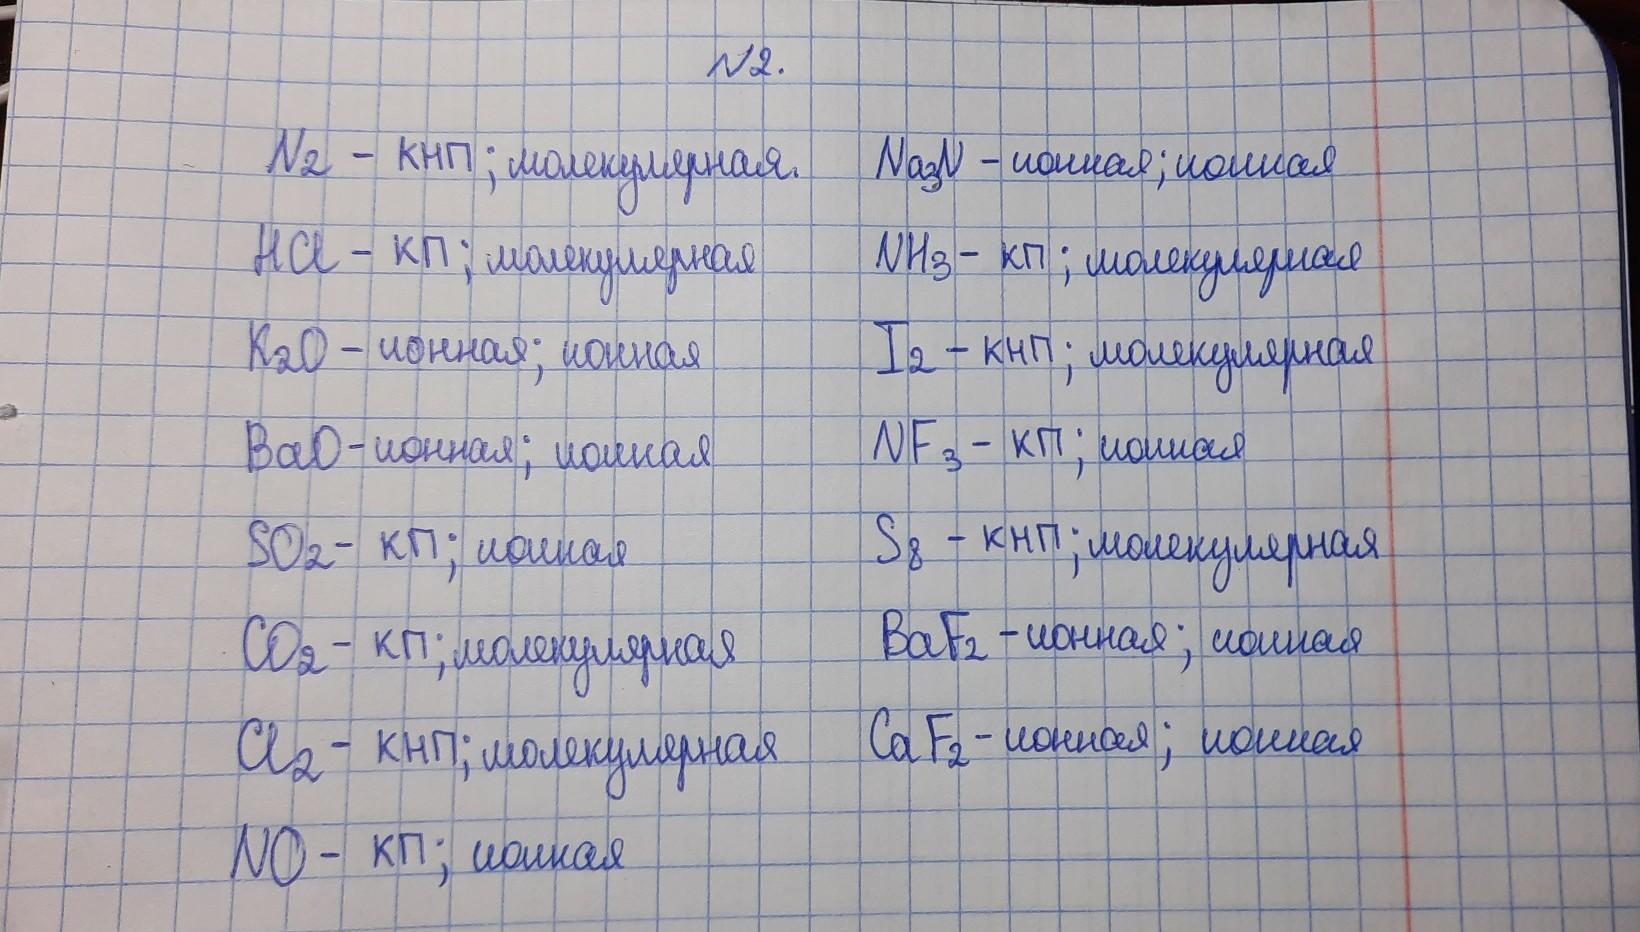 N2.
N2 - КНП; молекулярная.
HCl - КП; молекулярная
K2O - ионная; ионная
BaO - ионная; ионная
SO2 - КП; ионная
CO2 - КП; молекулярная
Cl2 - КНП; молекулярная
NO - КП; ионная
Na3N - ионная; ионная
NH3 - КП; молекулярная
I2 - КНП; молекулярная
NF3 - КП; ионная
S8 - КНП; молекулярная
BaF2 - ионная; ионная
CaF2 - ионная; ионная